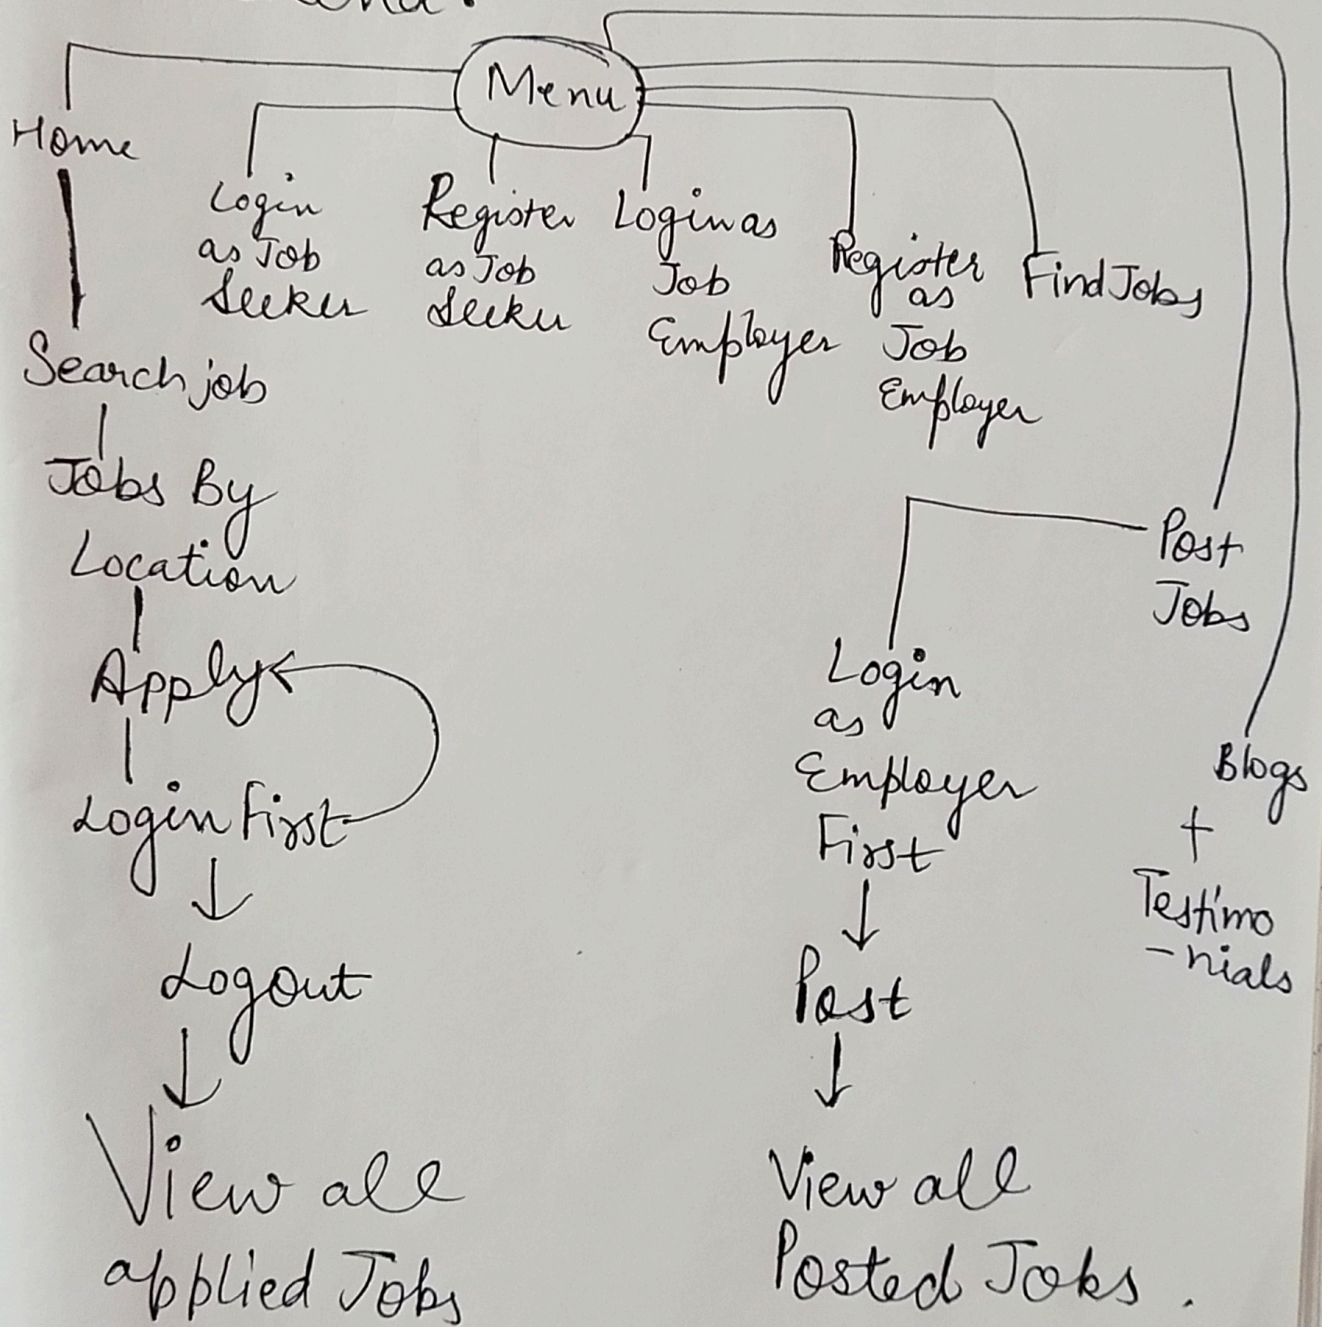 Menu
Home
Login
as Job
Seeker
Register
as Job
Seeker
Login as
Job
Employer
Register
as
Job
Employer
Find Jobs
Search job
Jobs By
Location
Apply
Login First
Logout
View all
applied Jobs
Post
Jobs
Login
as
Employer
First
Post
View all
Posted Jobs.
Blogs
+
Testimo
-nials